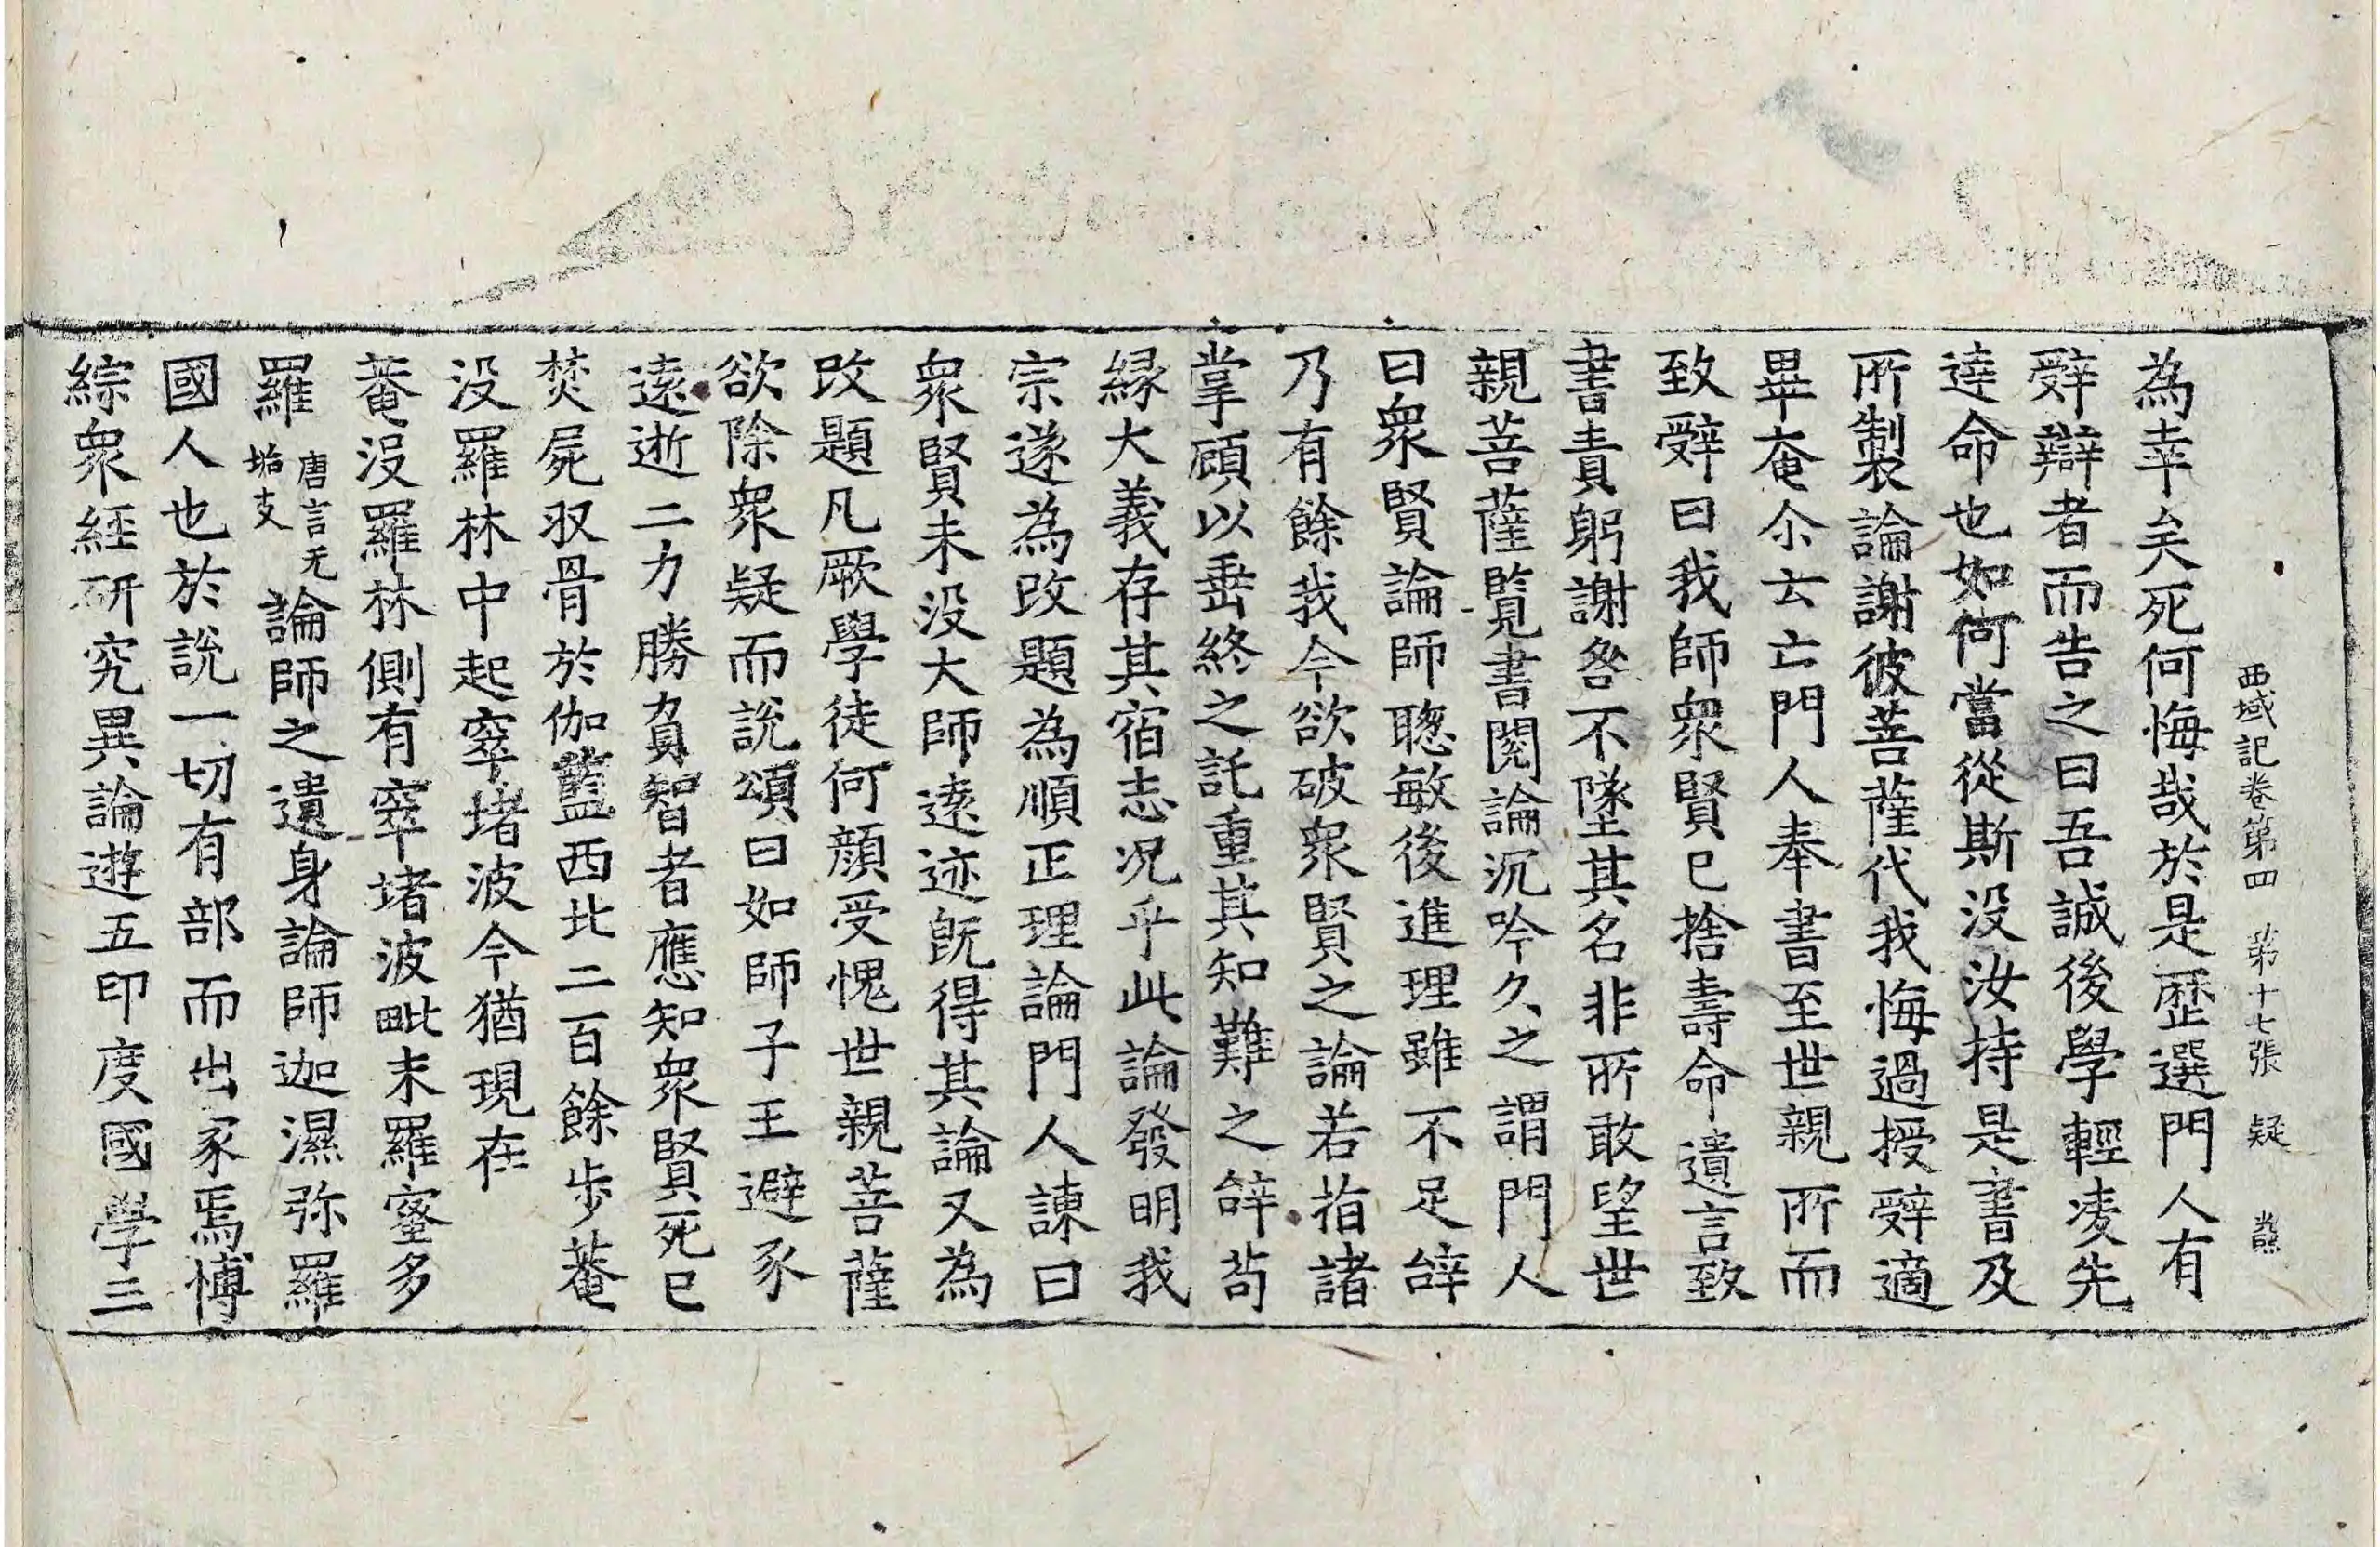 西域記卷第四　第十七張　疑
為幸矣死何悔哉於是歷選門人有
辤辯者而告之曰吾誠後學輕凌先
達命也如何當從斯没汝持是書及
所製論謝彼菩薩代我悔過授辤適
畢奄尒云亡門人奉書至世親所而
致辤曰我師衆賢已捨壽命遺言致
書責躬謝咎不墜其名非所敢望世
親菩薩覧書閱論沉吟久之謂門人
曰衆賢論師聦敏後進理雖不足辝
乃有餘我今欲破衆賢之論若指諸
掌顧以垂終之託重其知難之辝苟
緣大義存其宿志况乎此論發明我
宗遂為改題為順正理論門人諫曰
衆賢未没大師遠迹旣得其論又為
改題凡厥學徒何顔受愧世親菩薩
欲除衆疑而說頌曰如師子王避豕
遠逝二力勝負智者應知衆賢死已
焚屍収骨於伽藍西北二百餘步菴
没羅林中起窣堵波今猶現在
菴没羅林側有窣堵波毗末羅蜜多
羅唐言无垢友論師之遺身論師迦濕弥羅
國人也於說一切有部而出家焉博
綜衆經研究異論遊五印度國學三